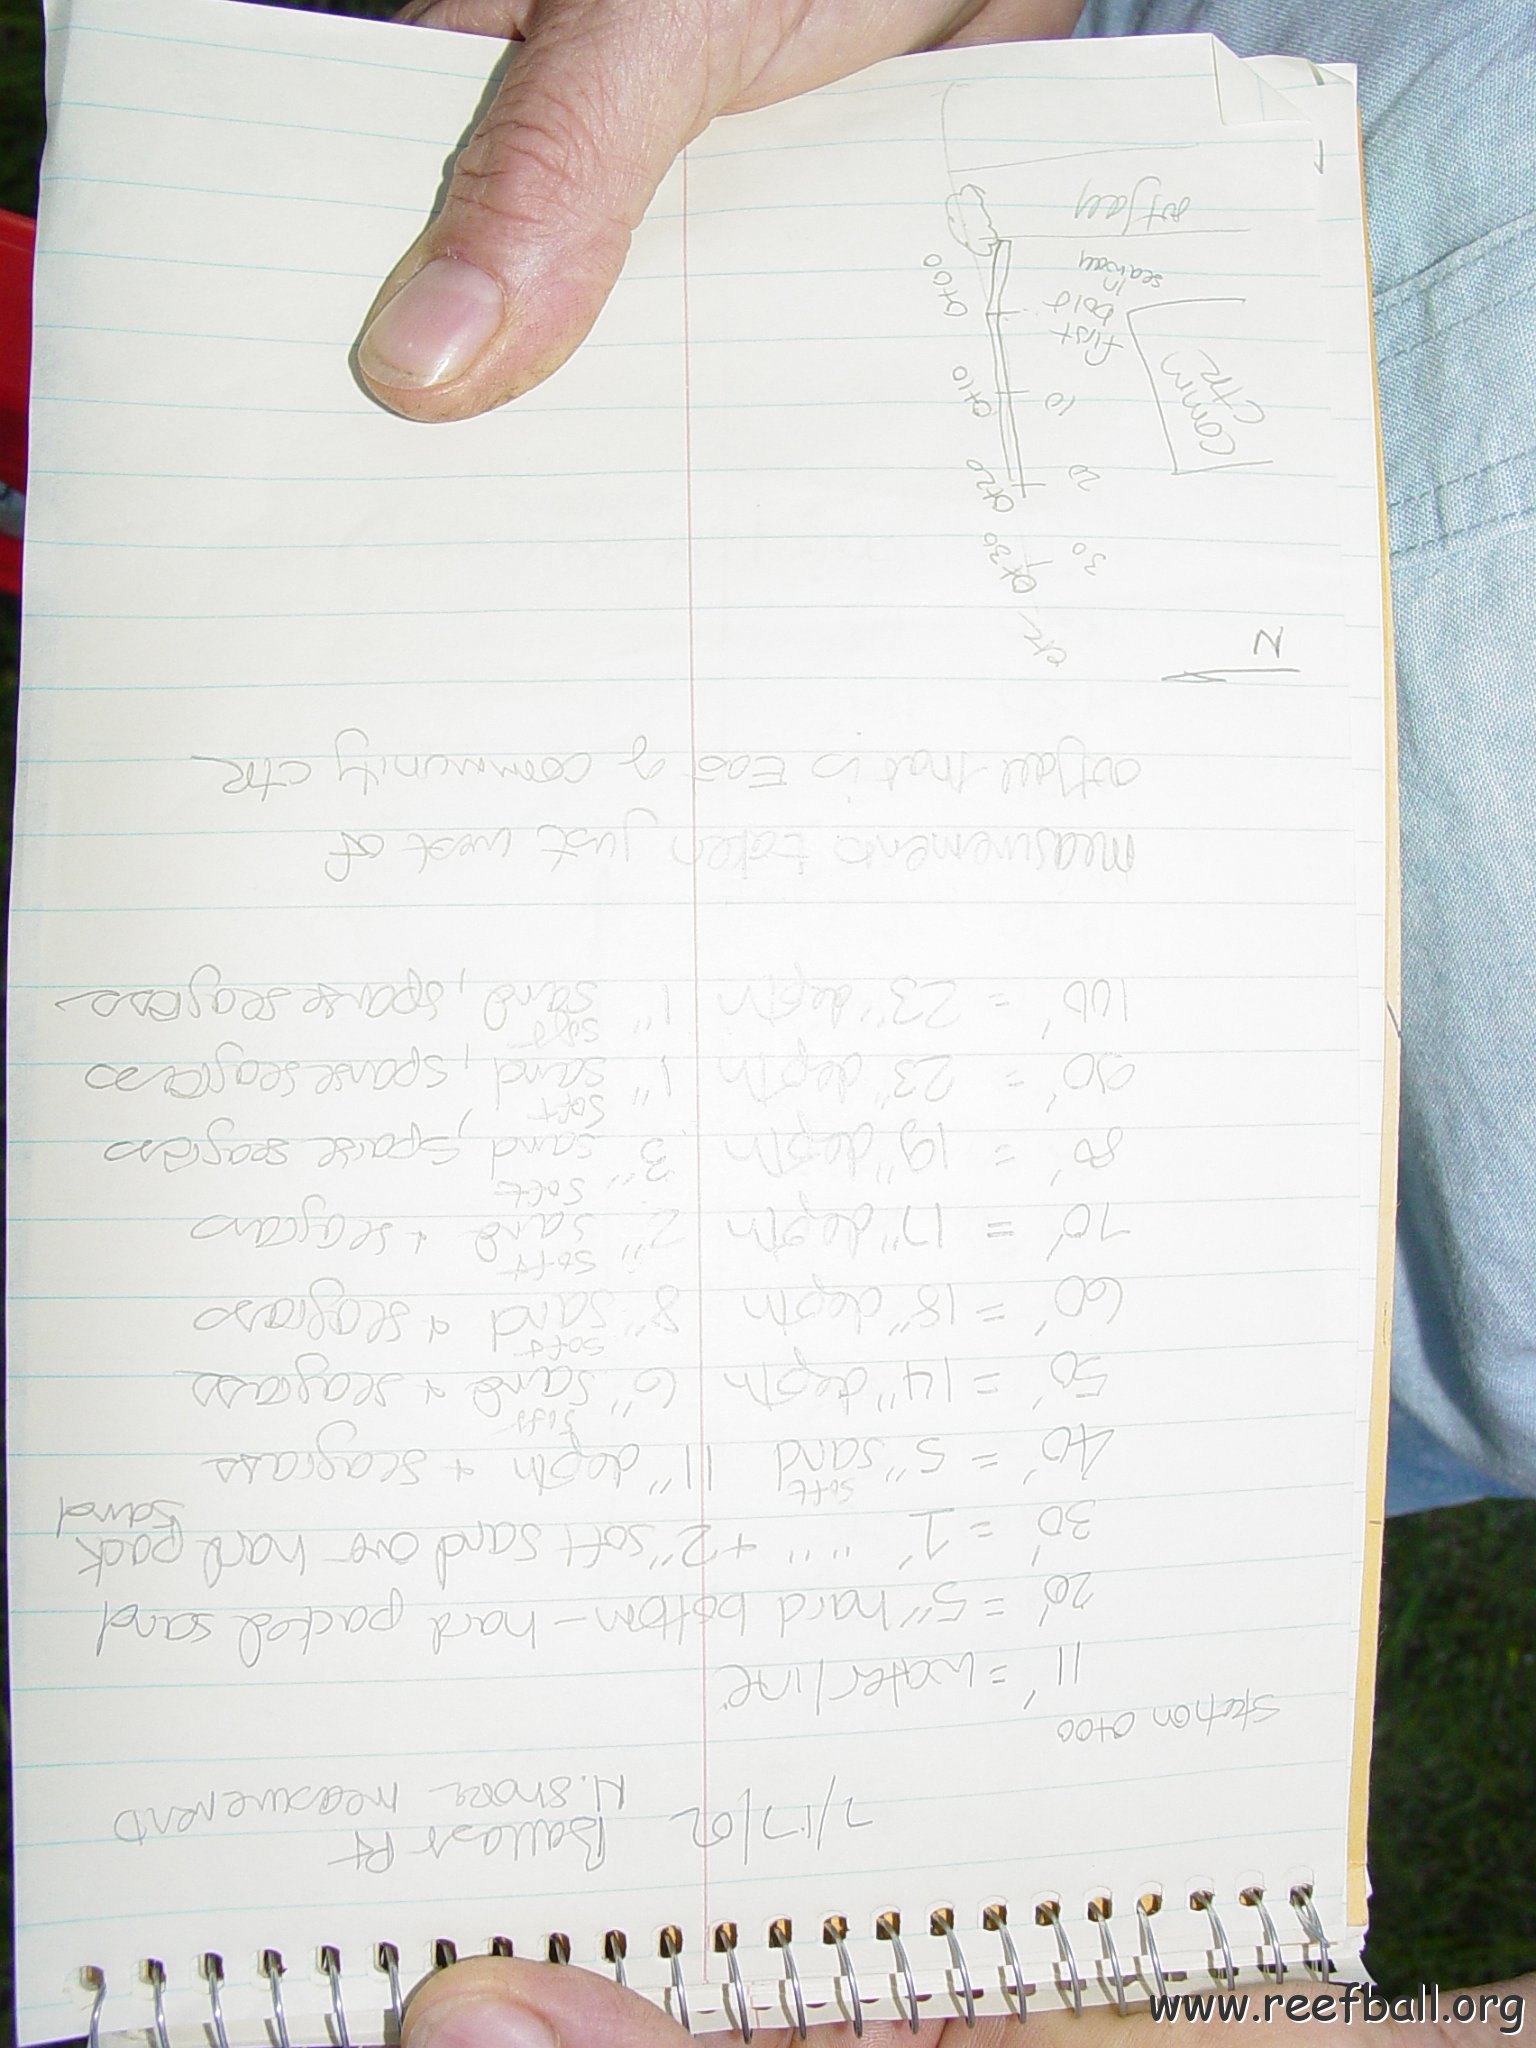 7/17/02 Ballast Pt
N. Shore measurements
Station 0+00
11' = waterline
20' = 5" hard bottom - hard packed sand
30' = 1' "" + 2" soft sand over hard pack sand
40' = 5" soft sand 11" depth + seagrass
50' = 14" depth 6" soft sand + seagrass
60' = 18" depth 8" soft sand + seagrass
70' = 17" depth 2" soft sand + seagrass
80' = 19" depth 3" soft sand, sparse seagrass
90' = 23" depth 1" soft sand, sparse seagrass
100' = 23" depth 1" soft sand, sparse seagrass
measurements taken just west of
outfall that is East of community CTR
N
etc
30 0+30
20 0+20
10 0+10
Comm
CTR
first
bold
in
seaway
0+00
outfall
www.reefball.org